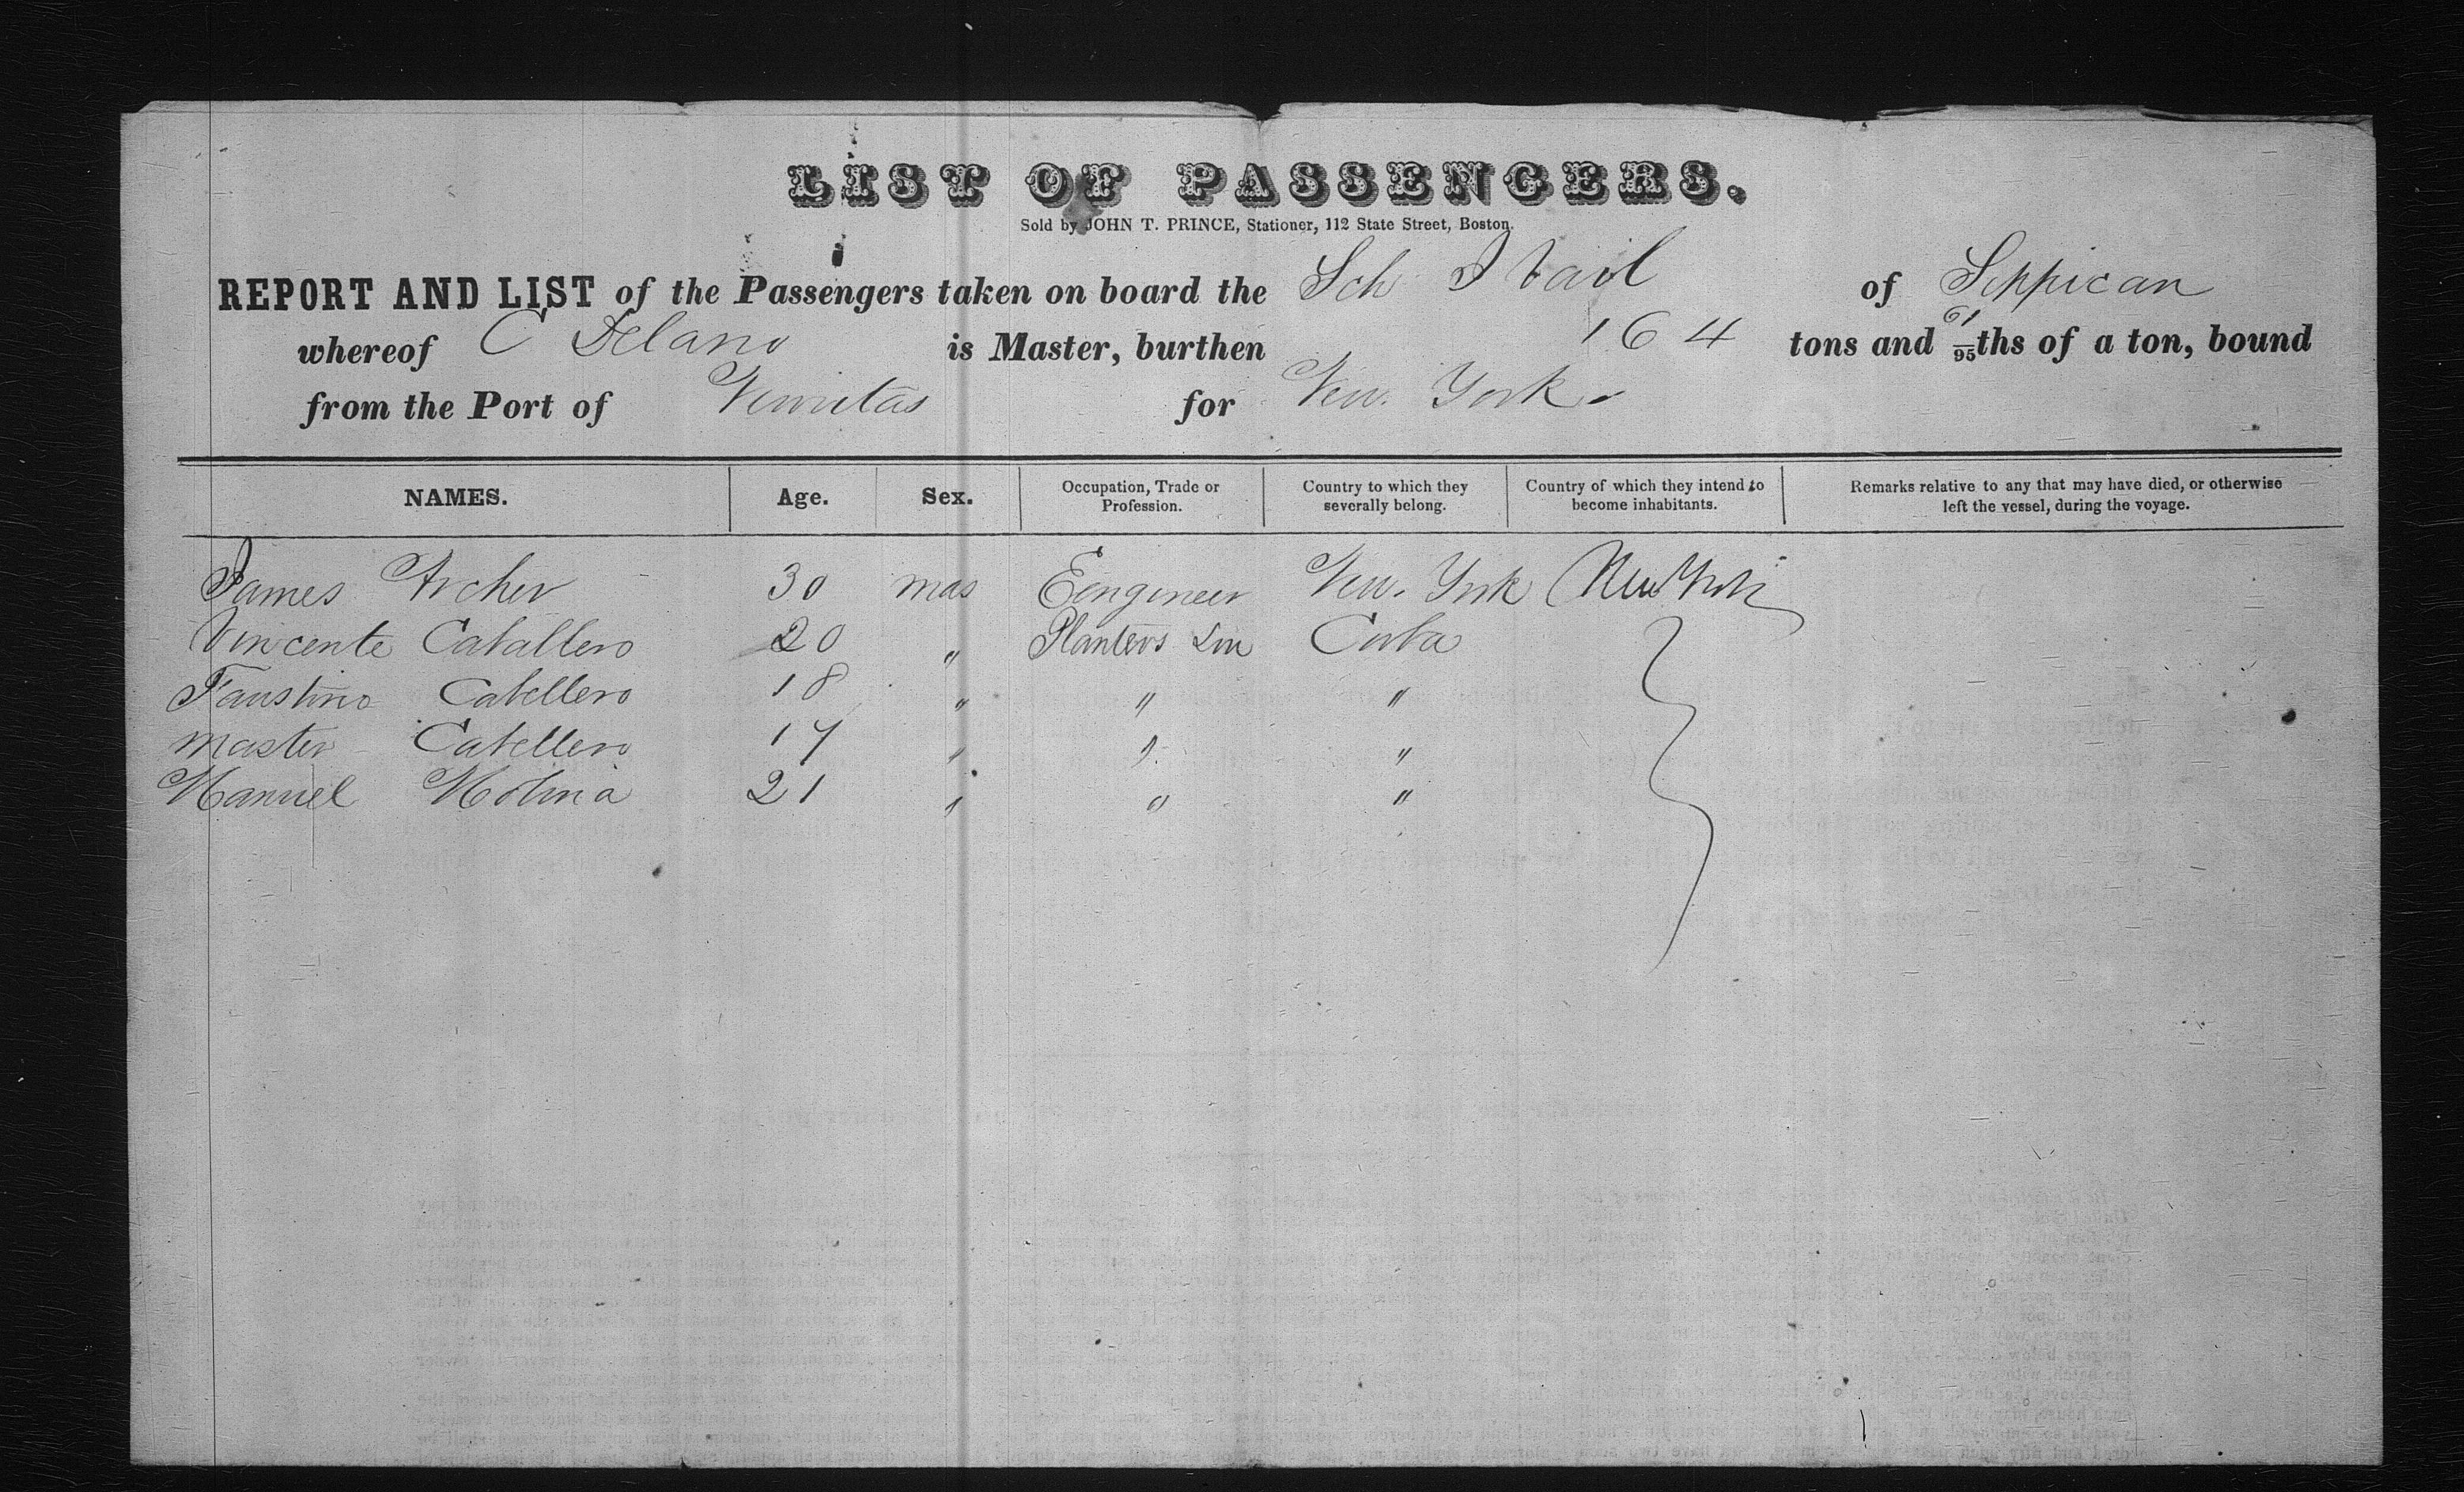 LIST OF PASSENGERS.
Sold by JOHN T. PRINCE, Stationer, 112 State Street, Boston.
REPORT AND LIST of the Passengers taken on board the Sch of Sippican
whereof C Delano is Master, burthen 164 tons and 61/95ths of a ton, bound
from the Port of for New. York
NAMES. Age. Sex. Occupation, Trade or Profession. Country to which they severally belong. Country of which they intend to become inhabitants. Remarks relative to any that may have died, or otherwise left the vessel, during the voyage.
James Archer 30 mas Eengineer New. York New York
Vincente Caballero 20 " Planters Son Cuba
Faustino Cabellero 18 " " "
master Cabellero 17 " " "
Manuel Molina 21 " " "